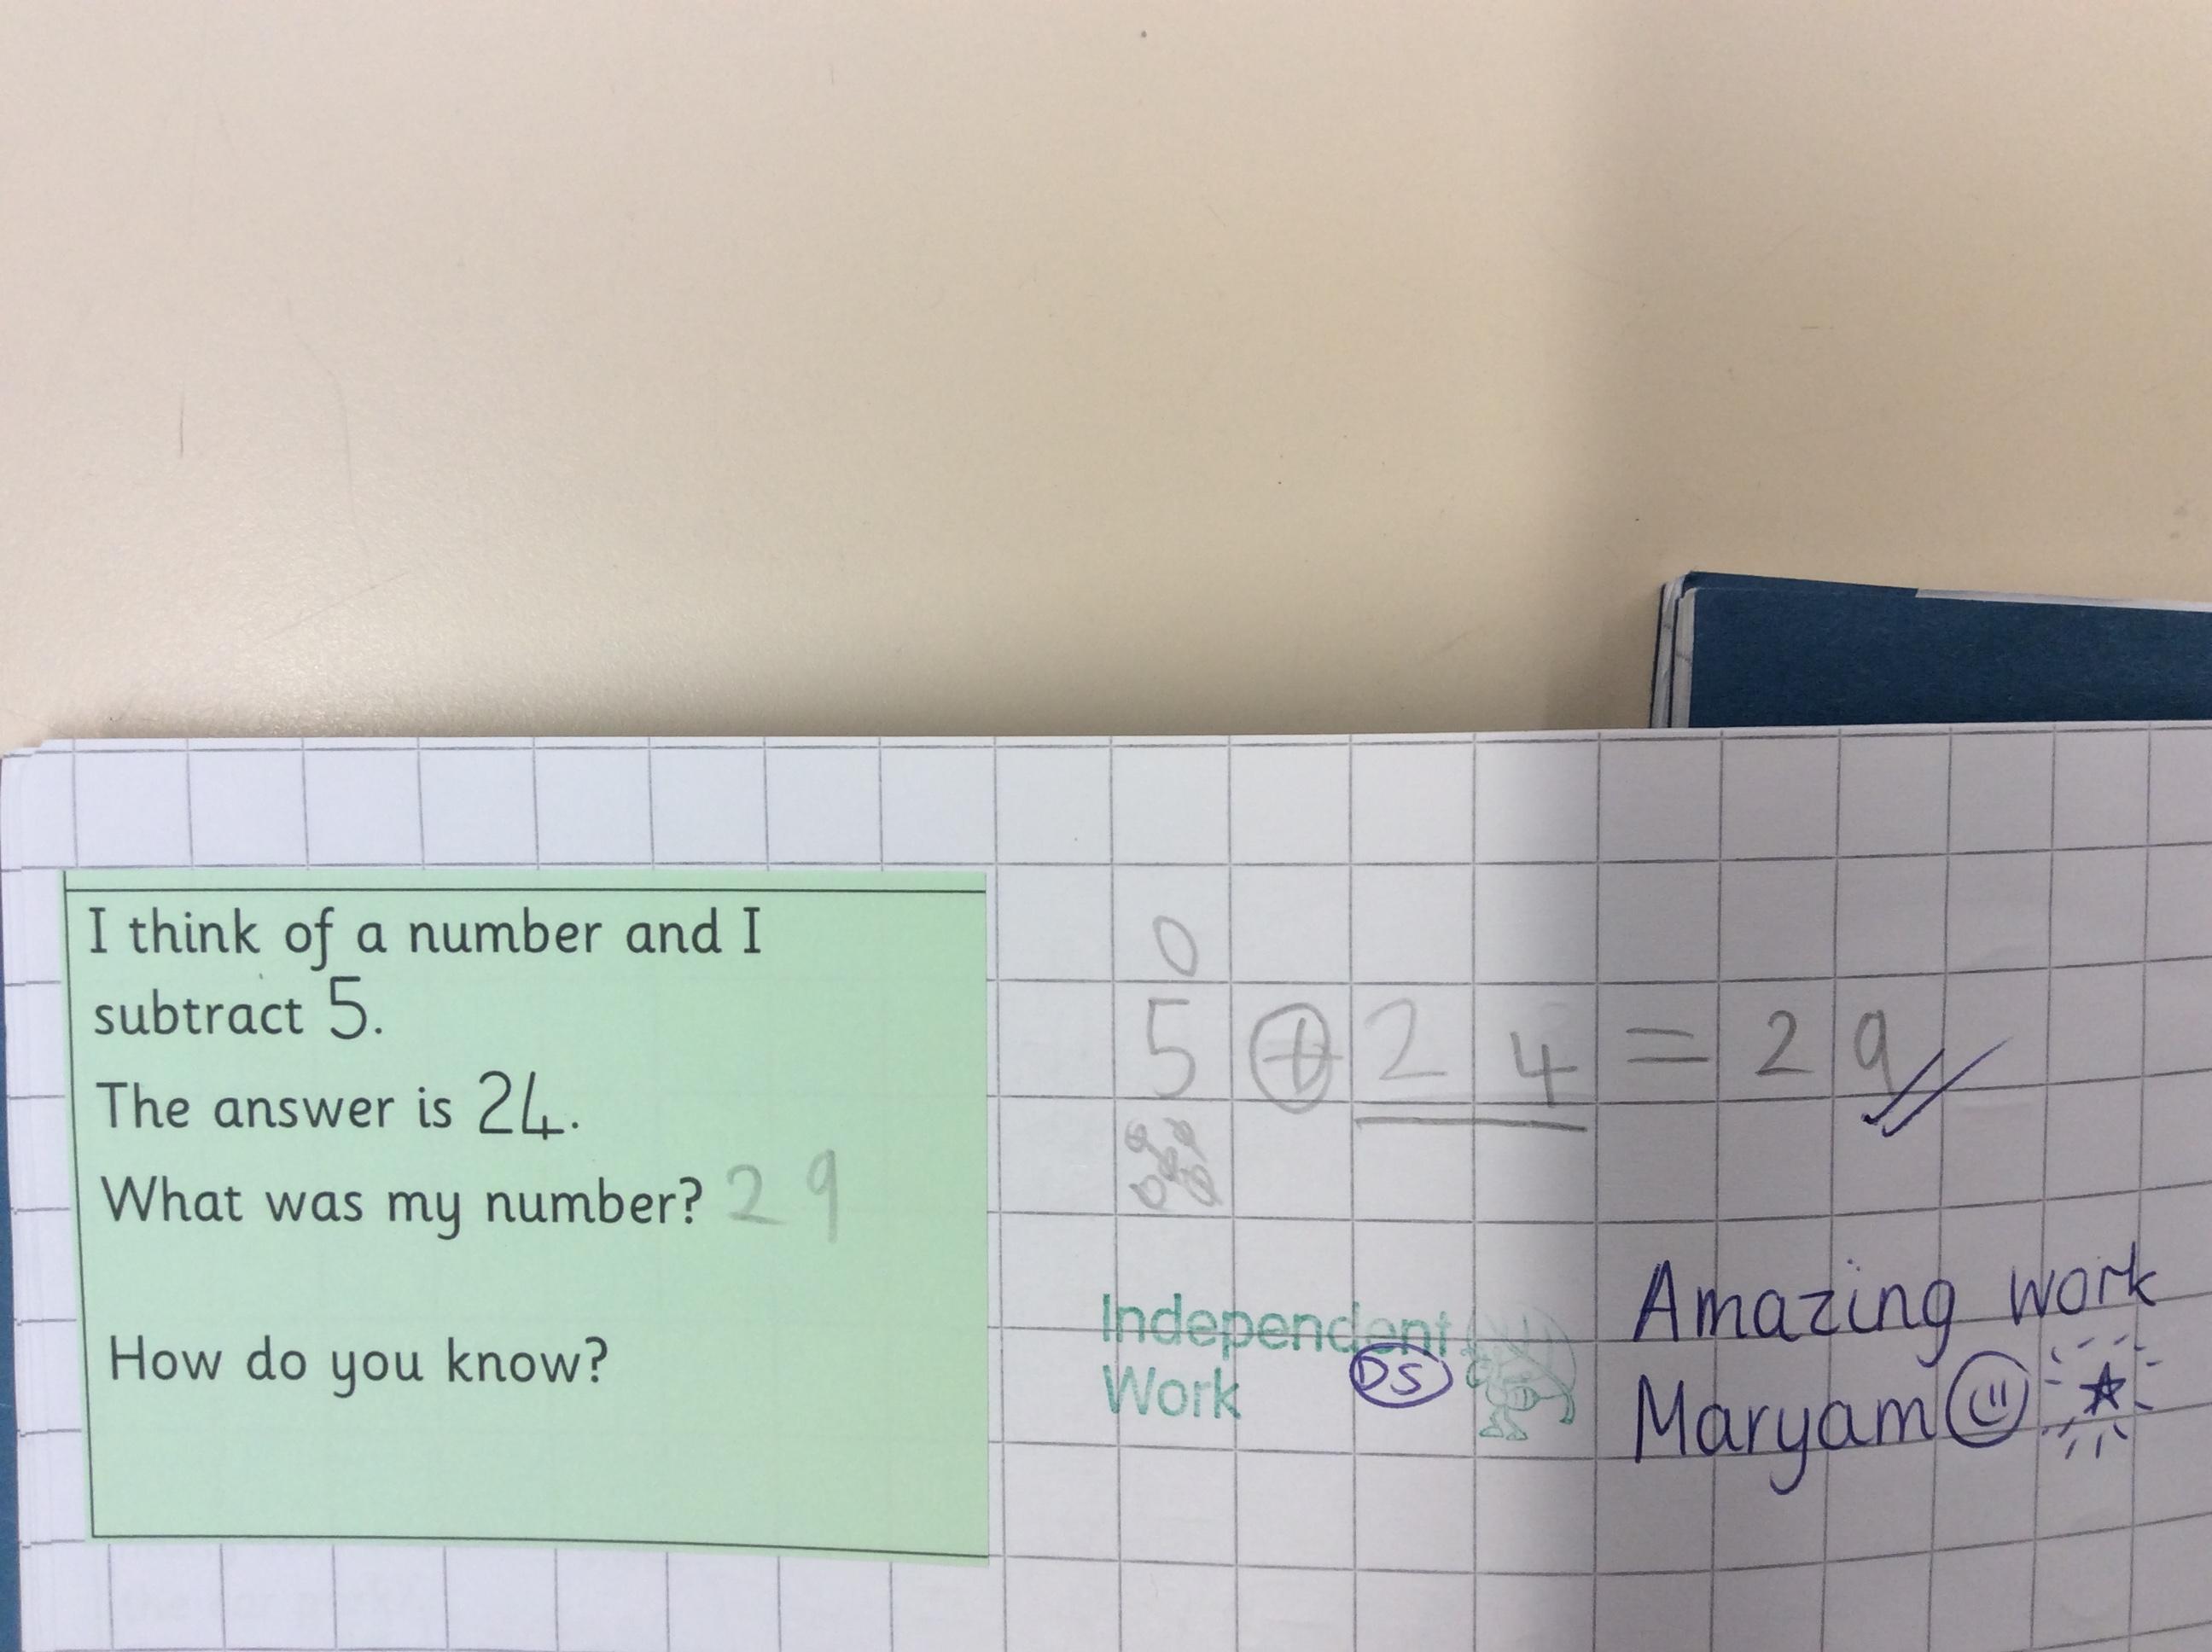 I think of a number and I
subtract 5.
The answer is 24.
What was my number? 29
How do you know?
0
5 + 24 = 29
Independent
Work
DS
Amazing work
Maryam